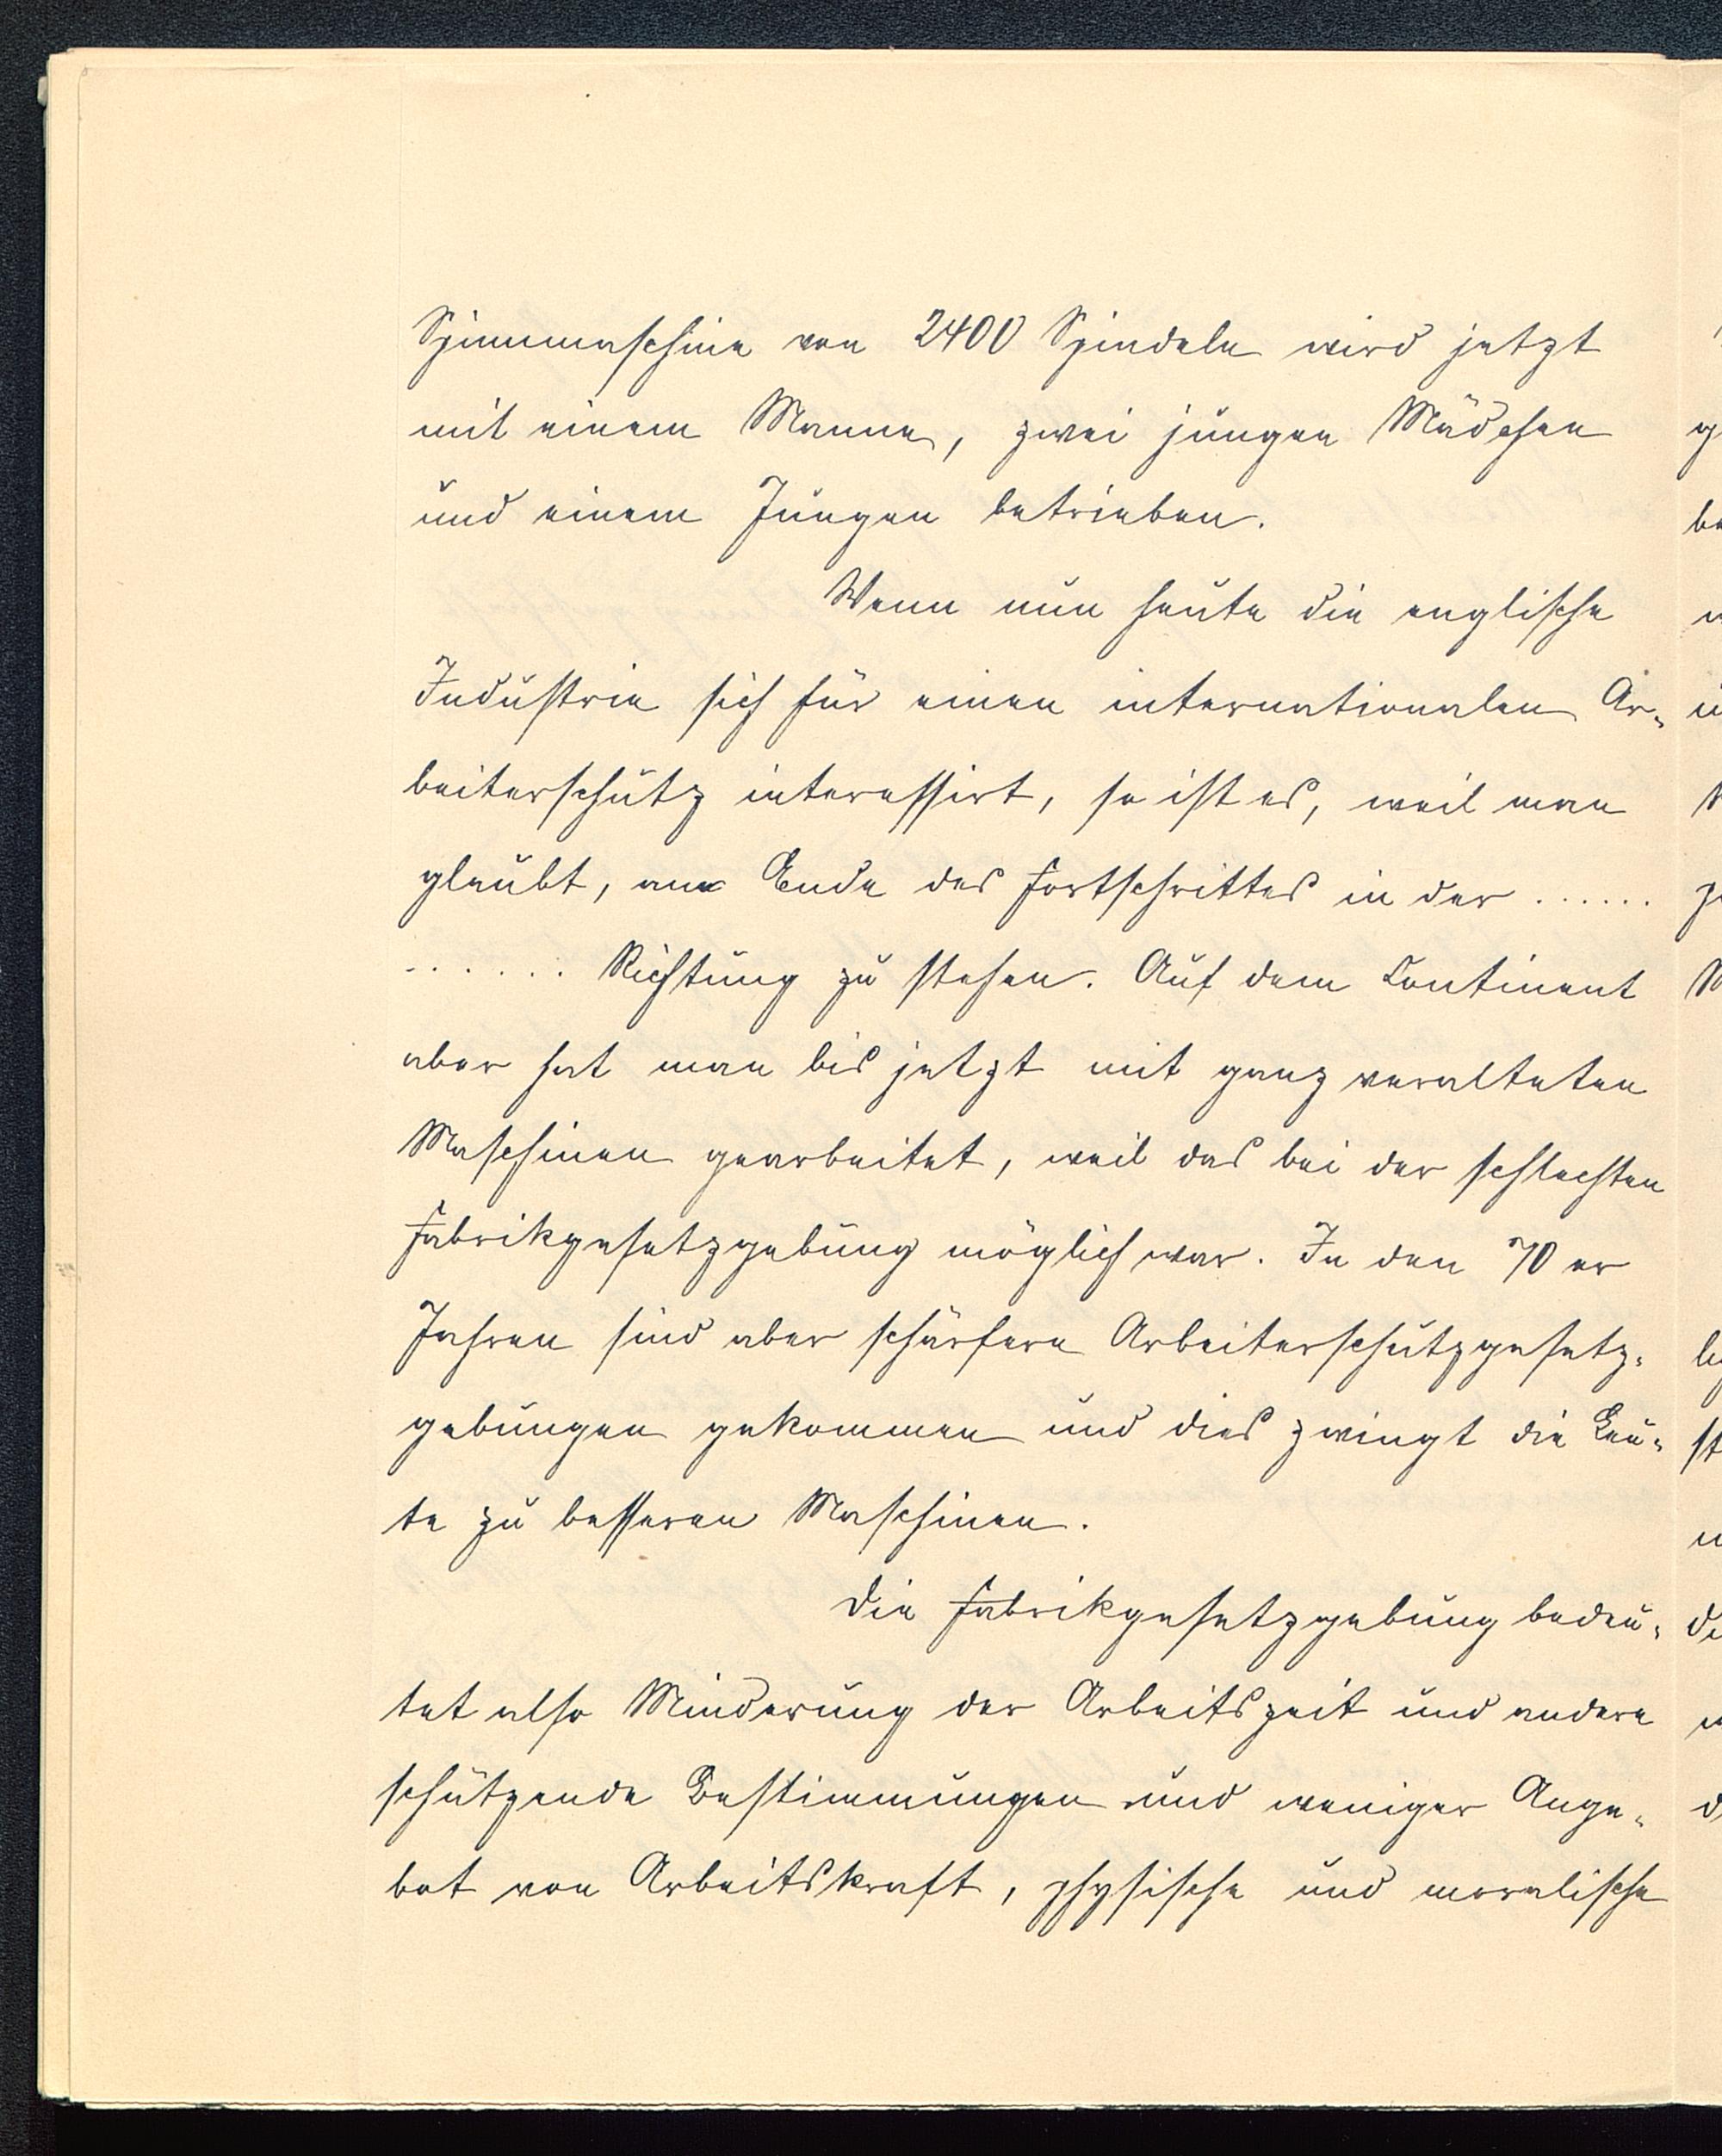 Spinnmaschine von 2400 Spindeln wird jetzt
mit einem Manne, zwei jungen Mädchen
und einem Jungen betrieben.
Wenn nun heute die englische
Industrie sich für einen internationalen Ar-
beiterschutz interessirt, so ist es, weil man
glaubt, am Ende des Fortschrittes in der ......
...... Richtung zu stehen. Auf dem Continent
aber hat man bis jetzt mit ganz veralteten
Maschinen gearbeitet, weil das bei der schlechten
Fabrikgesetzgebung möglich war. In den 70 er
Jahren sind aber schärfere Arbeiterschutzgesetz-
gebungen gekommen und dies zwingt die Leu-
te zu besseren Maschinen.
Die Fabrikgesetzgebung bedeu-
tet also Minderung der Arbeitszeit und andere
schützende Bestimmungen und weniger Ange-
bot von Arbeitskraft, physische und moralische